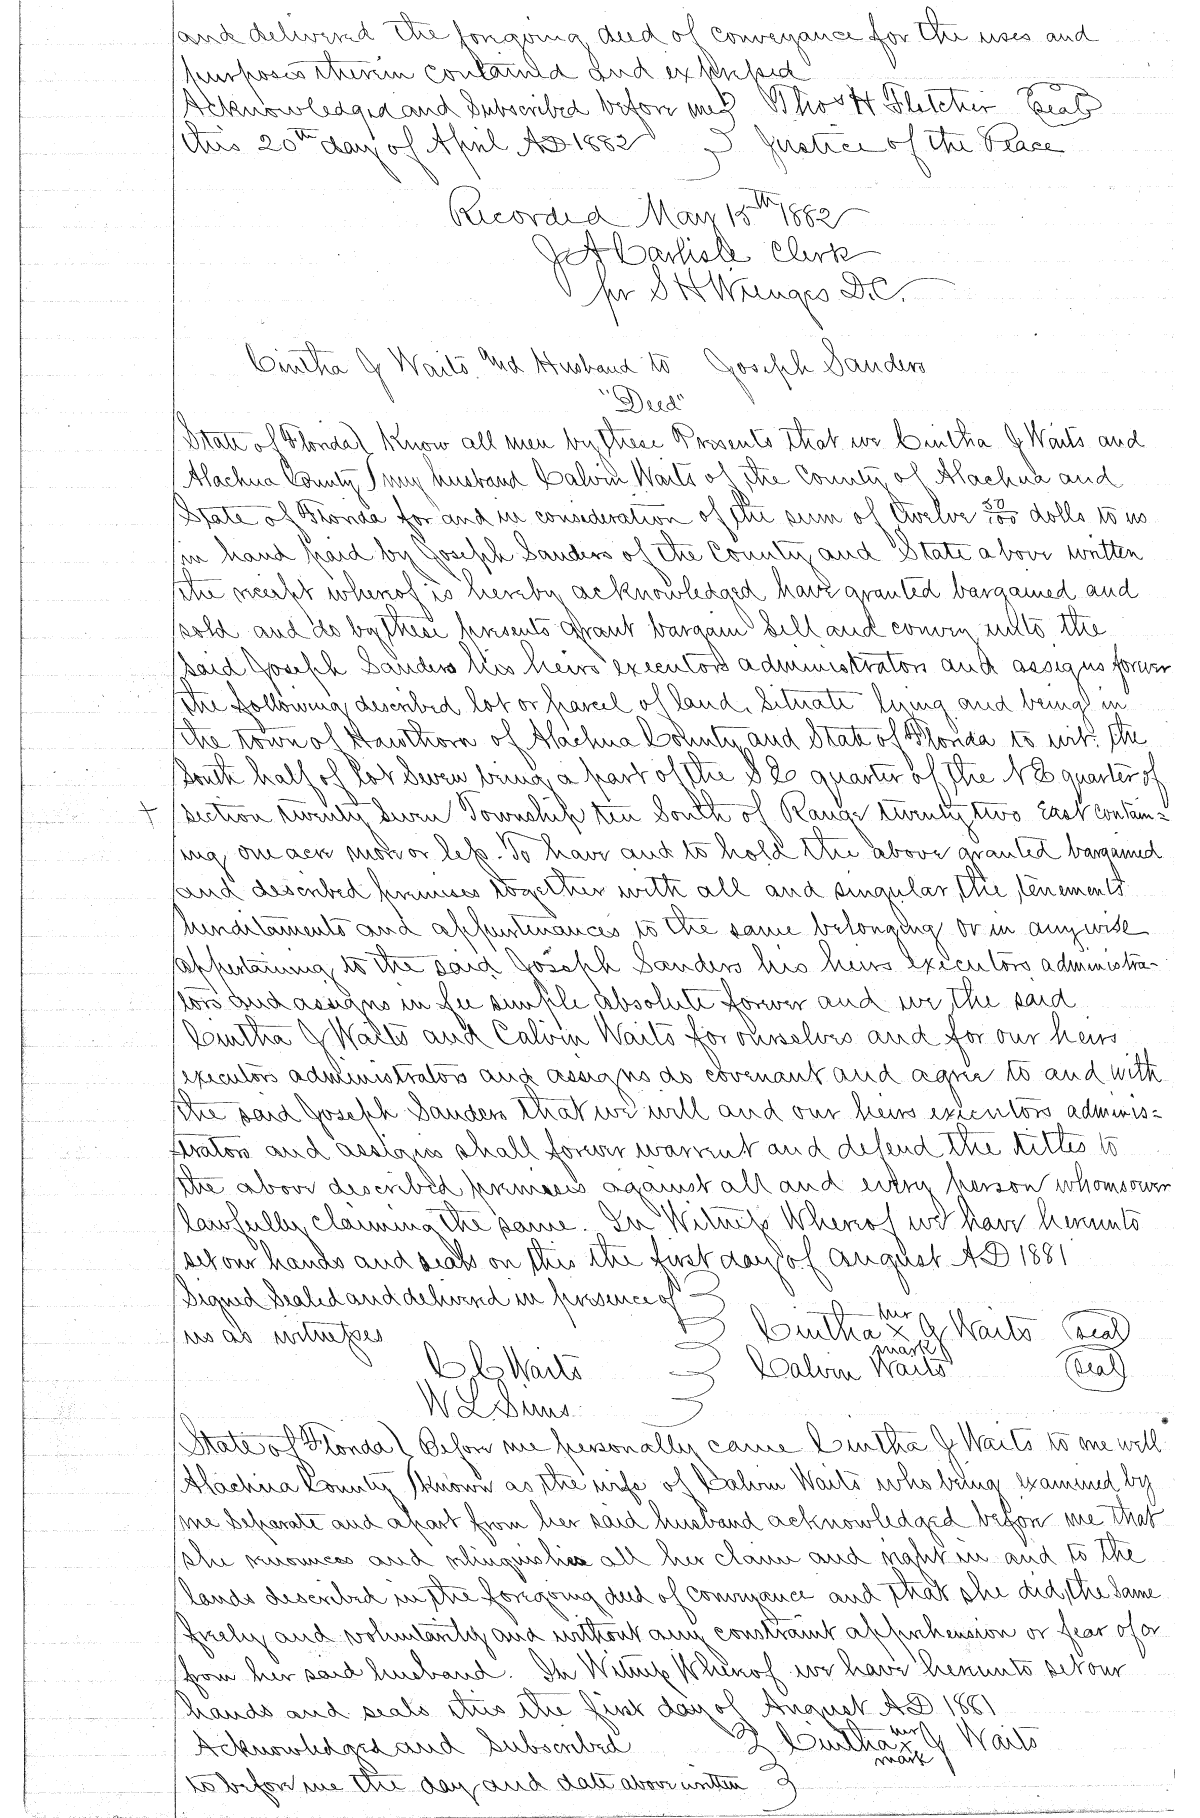 and delivered the foregoing deed of conveyance for the uses and
purposes therein contained and expressed
Acknowledged and Subscribed before me } Thos H Fletcher (Seal)
this 20th day of April AD 1882 } Justice of the Peace
Recorded May 15th 1882
J A Carlisle Clerk
pr S H Wienges D.C.
Cintha J Waits and Husband to Joseph Sanders
"Deed"
State of Florida } Know all men by these Presents that we Cintha J Waits and
Alachua County } my husband Calvin Waits of the County of Alachua and
State of Florida for and in consideration of the sum of twelve 50/100 dolls to us
in hand paid by Joseph Sanders of the County and State above written
the receipt whereof is hereby acknowledged have granted bargained and
sold and do by these presents grant bargain Sell and convey unto the
said Joseph Sanders his heirs executors administrators and assigns forever
the following described lot or parcel of land, Situate lying and being in
the town of Hawthorn of Alachua County and State of Florida to wit: the
South half of lot Seven being a part of the S E quarter of the N E quarter of
+ section twenty Seven Township ten South of Range twenty two East contain=
ing one acre more or less. To have and to hold the above granted bargained
and described premises together with all and singular the tenements
hereditaments and appurtenances to the same belonging or in any wise
appertaining to the said Joseph Sanders his heirs executors administra-
tors and assigns in fee simple absolute forever and we the said
Cintha J Waits and Calvin Waits for ourselves and for our heirs
executors administrators and assigns do covenant and agree to and with
the said Joseph Sanders that we will and our heirs executors adminis=
trators and assigns shall forever warrent and defend the tittes to
the above described premises against all and every person whomsoever
lawfully claiming the same. In Witness Whereof we have hereunto
set our hands and seals on this the first day of August AD 1881
Signed Sealed and delivered in presence of }
us as witnesses } Cintha her x mark J Waits (seal)
C C Waits } Calvin Waits (seal)
W L Sims }
State of Florida } Before me personally came Cintha J Waits to me well
Alachua County } known as the wife of Calvin Waits who being examined by
me Separate and apart from her said husband acknowledged before me that
she renounces and relinquishes all her claim and right in and to the
lands described in the foregoing deed of conveyance and that she did the Same
freely and voluntarily and without any constraint apprehension or fear of or
from her said husband. In Witness Whereof we have hereunto set our
hands and seals this the first day of August AD 1881
Acknowledged and Subscribed } Cintha her x mark J Waits
to before me the day and date above written }